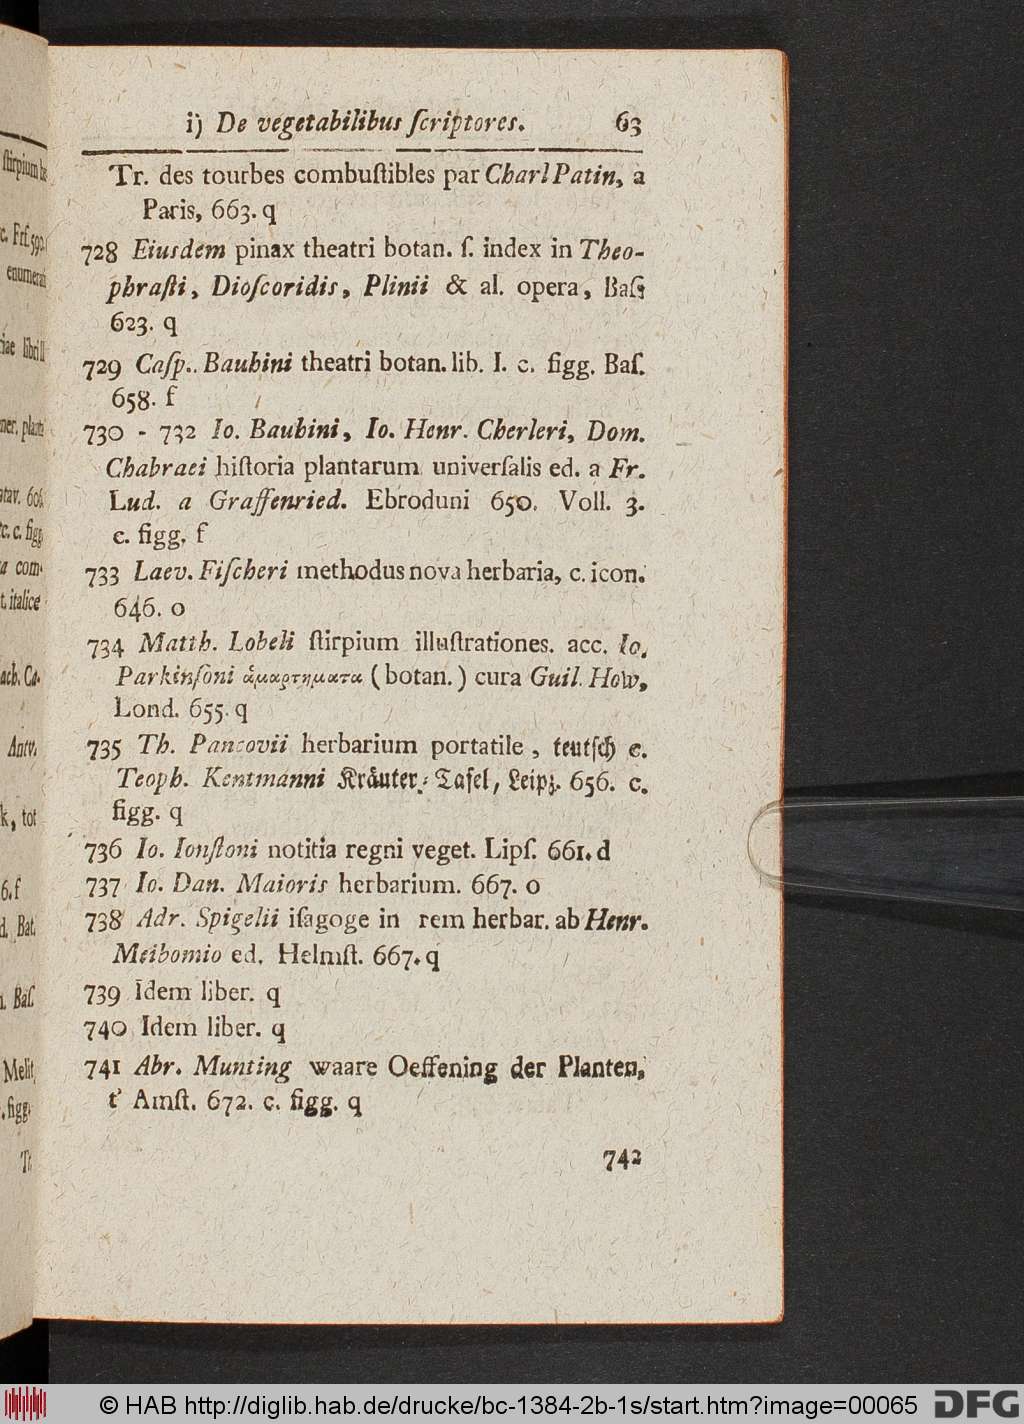 i) De vegetabilibus ſcriptores. 63
Tr. des tourbes combuſtibles par Charl Patin, a
Paris, 663. q
728 Eiusdem pinax theatri botan. ſ. index in Theo-
phraſti, Dioſcoridis, Plinii & al. opera, Baſ.
623. q
729 Caſp.. Bauhini theatri botan. lib. I. c. figg. Baſ.
658. f
730 - 732 Io. Bauhini, Io. Henr. Cherleri, Dom.
Chabraei hiſtoria plantarum univerſalis ed. a Fr.
Lud. a Graffenried. Ebroduni 650. Voll. 3.
c. figg. f
733 Laev. Fiſcheri methodus nova herbaria, c. icon.
646. o
734 Matth. Lobeli ſtirpium illuſtrationes. acc. Io.
Parkinſoni ἁμαρτηματα (botan.) cura Guil. How,
Lond. 655. q
735 Th. Pancovii herbarium portatile, teutſch c.
Teoph. Kentmanni Kräuter-Tafel, Leipz. 656. c.
figg. q
736 Io. Ionſtoni notitia regni veget. Lipſ. 661. d
737 Io. Dan. Maioris herbarium. 667. o
738 Adr. Spigelii iſagoge in rem herbar. ab Henr.
Meibomio ed. Helmſt. 667. q
739 Idem liber. q
740 Idem liber. q
741 Abr. Munting waare Oeffening der Planten,
t' Amſt. 672. c. figg. q
742
ſtirpium
c. Frf. 590.
riae libri II
6. f
d. Bat.
Baſ.
Melit.
Tr.
© HAB http://diglib.hab.de/drucke/bc-1384-2b-1s/start.htm?image=00065
DFG